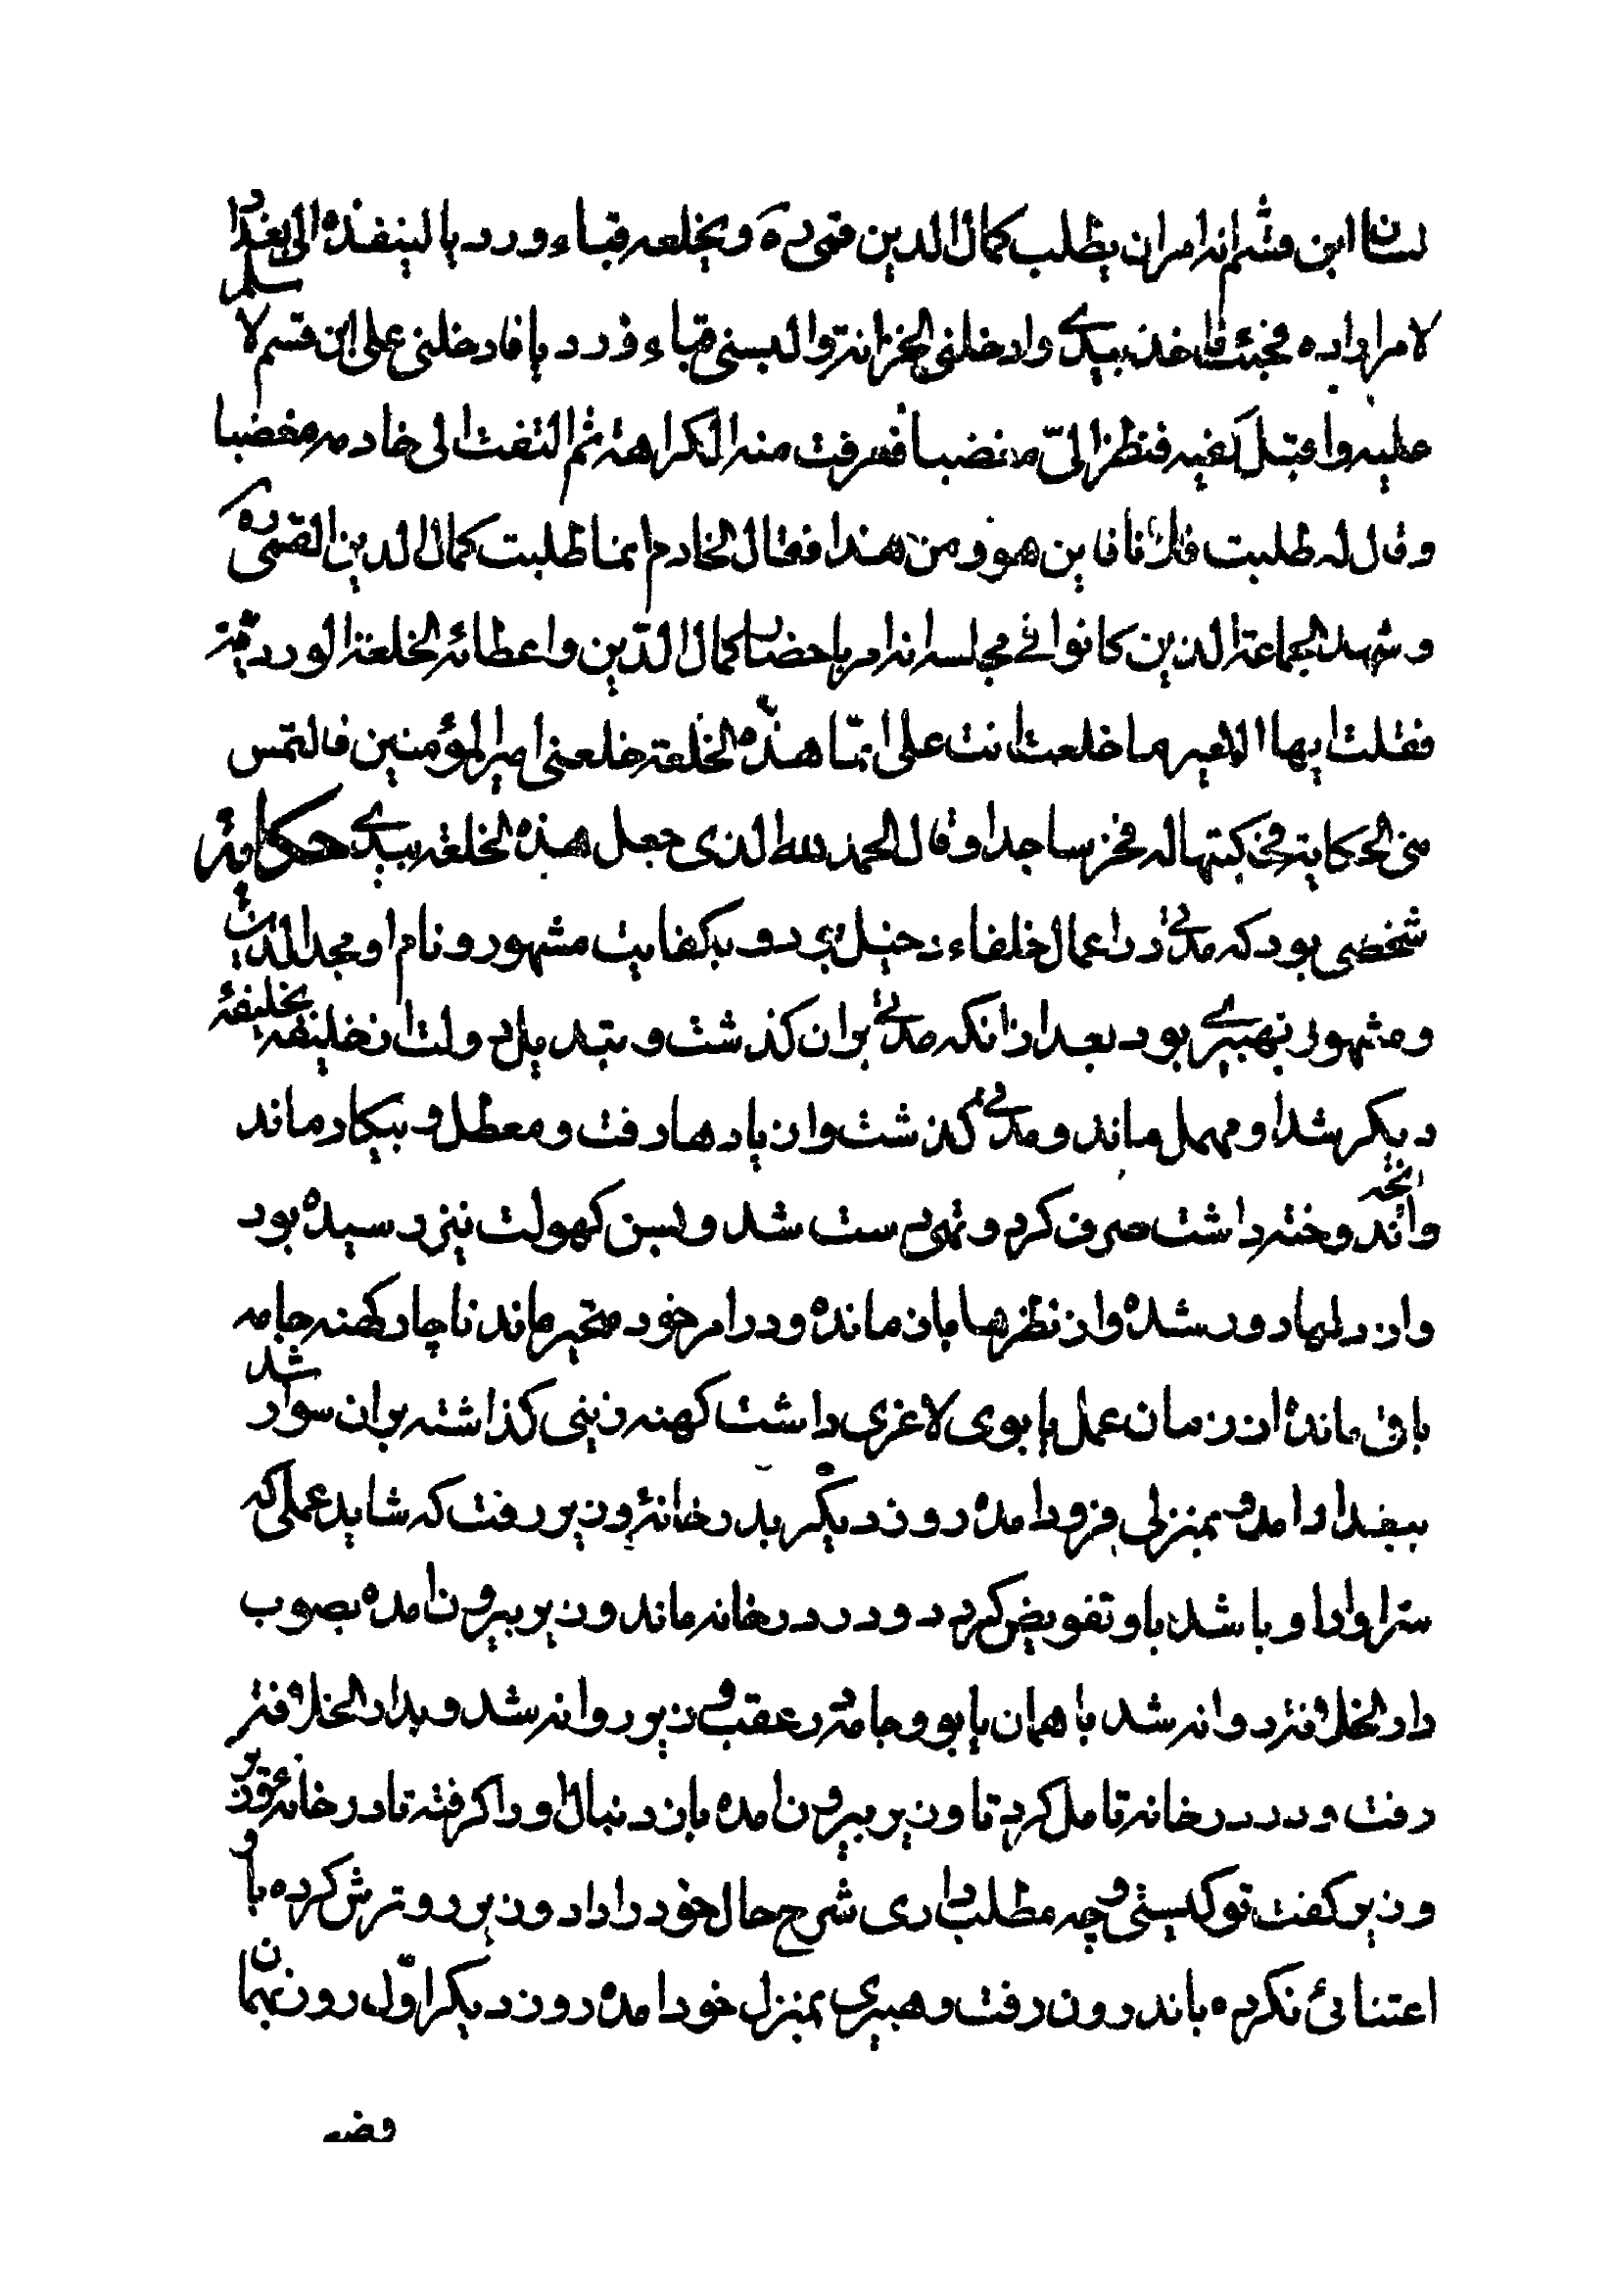 لسان ابن قشم انه امر ان يطلب كمال الدين قمى ره و يخلعه قباء ورديا لينفذه الى بغداد
لامر اراده فجئت فاخذ بيدي وادخلنى الخزانة والبسنى قباء ورديا فادخلنى على ابن قسم لاسلم
عليه واقبل كفيه فنظر الىّ مغضبا فعرفت منه الكراهة ثم التفت الى خادمه مغضبا
وقال له طلبت فلانا فاين هو ومن هذا فقال الخادم انما طلبت كمال الدين القمى ره
وشهد الجماعة الذين كانوا فى مجلسه انه امر باحضار كمال الدّين واعطائه الخلعة الوردية
فقلت ايها الامير ما خلعت انت على انّما هذه الخلعة خلعنى امير المؤمنين فالتمس
منى الحكاية فحكيتها له فخر ساجدا وقال الحمد لله الذى جعل هذه الخلعة بيدي حكاية
شخصى بود كه مدتى در اعمال خلفاء دخيل بودى و بكفايت مشهور و نام او مجد الدين
و مشهور بهبيرى بود بعد از انكه مدتى بران كذشت و تبديل دولت از خليفه بخليفهٔ
ديكر شد او مهمل ماند و مدتى كذشت و ان يادها رفت و معطل و بيكار ماند
و انچه اندوخته داشت صرف كرد و تهى دست شد و بسن كهولت نيز رسيده بود
و از دلها دور شده و از نظرها باز مانده و در امر خود متحير ماند ناچار كهنه جامه
باقى مانده از زمان عمل يابوى لاغرى داشت كهنه زينى كذاشته بران سوار شد
ببغداد امد و بمنزلى فرود امده روز ديكر بدر خانهٔ وزير رفت كه شايد عملى كه
سزاوار او باشد باو تفويض كرد دور در درخانه ماند وزير بيرون امده بصوب
دار الخلافة روانه شد با همان يابو و جامه در عقب وزير روانه شد و بدار الخلافة
رفت و در درخانه تامل كرد تا وزير بيرون امده باز دنبال او را كرفته تا درخانه وزير
وزير كفت تو كيستى و چه مطلب دارى شرح حال خود را داد وزير رو ترش كرده باو
اعتنائى نكرده باندرون رفت و هبيرى بمنزل خود امده روز ديكر اوّل روز بهمان
وضع